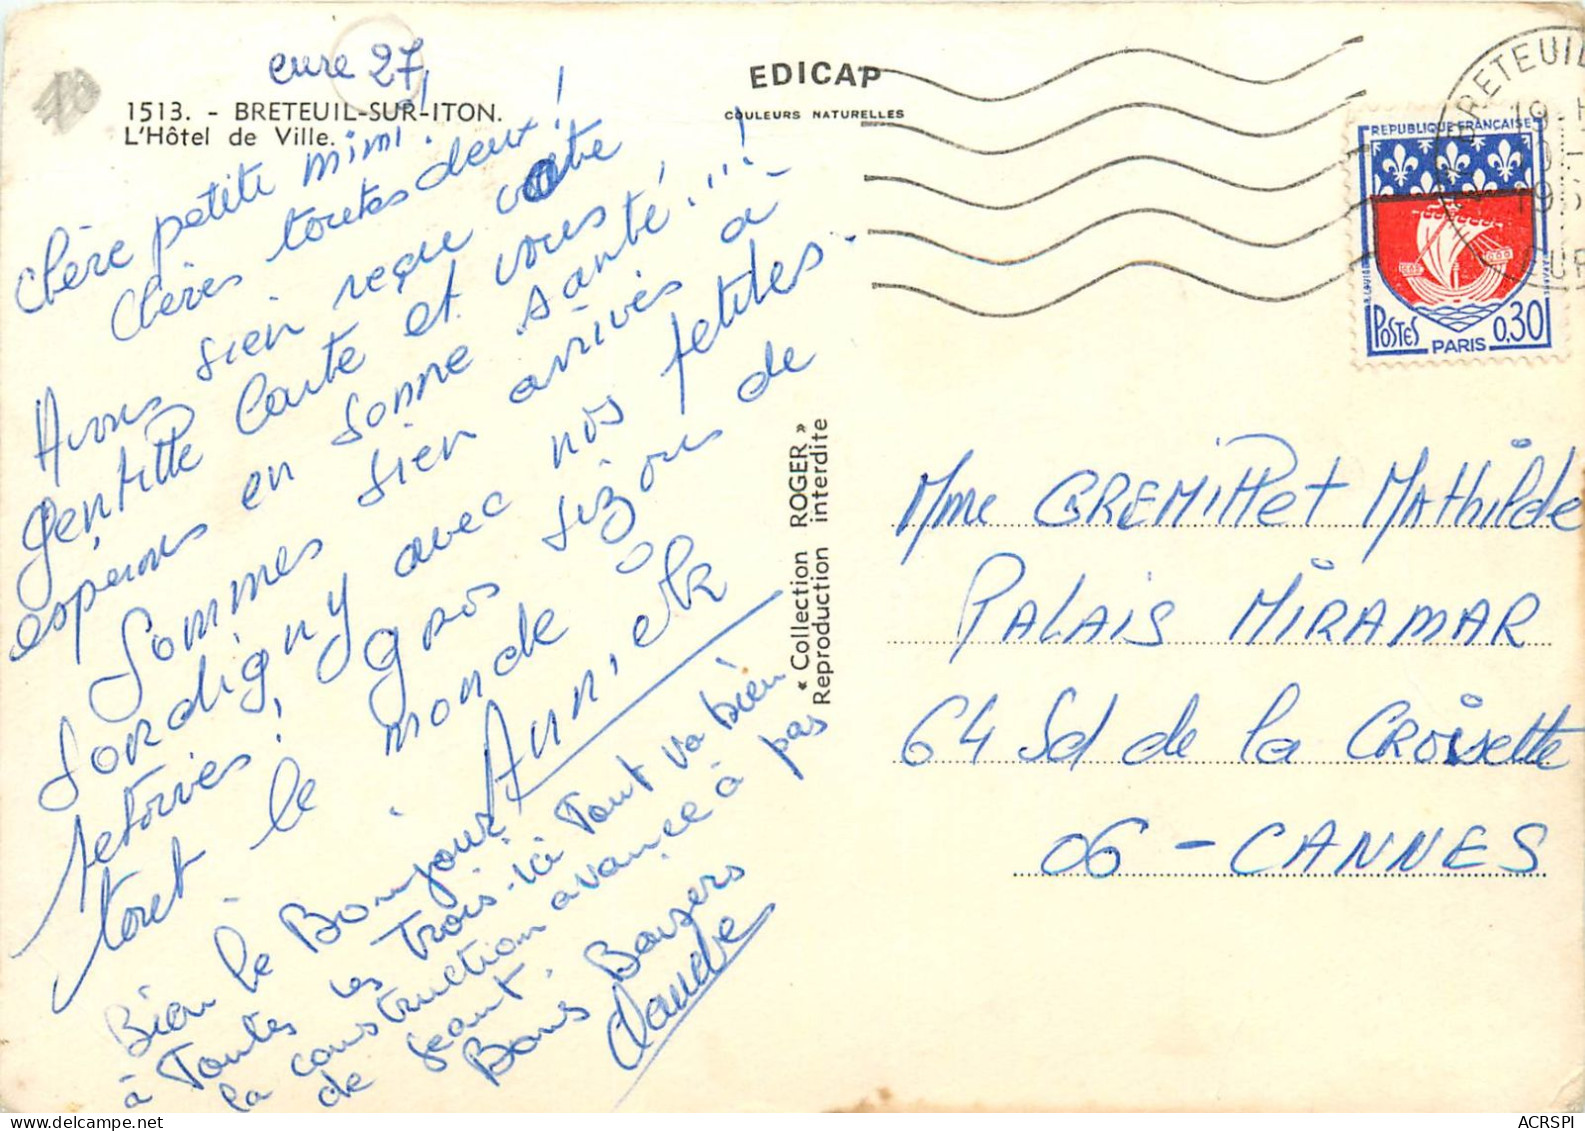 eure 27
1513. - BRETEUIL-SUR-ITON.
L'Hôtel de Ville.
EDICAP
COULEURS NATURELLES
Chère petite mimi!
Chères toutes deux!
Avons bien reçu votre
gentille Carte et vous
espérons en bonne santé!!!
Sommes bien arrivés à
Bordigny avec nos petites
tout le monde
gros bizous de
Annick
Bien le Bonjour
à Toutes les Trois. Ici Tout va bien
la construction avance à pas
de geant.
Bons Baisers
Claude
« Collection ROGER »
Reproduction interdite
REPUBLIQUE FRANÇAISE
POSTES
PARIS
0,30
BRETEUIL
19
EUR
Mme GREMILLet MAthilde
PALAIS MIRAMAR
64 Bd de la CROisette
06 - CANNES
ACRSPI